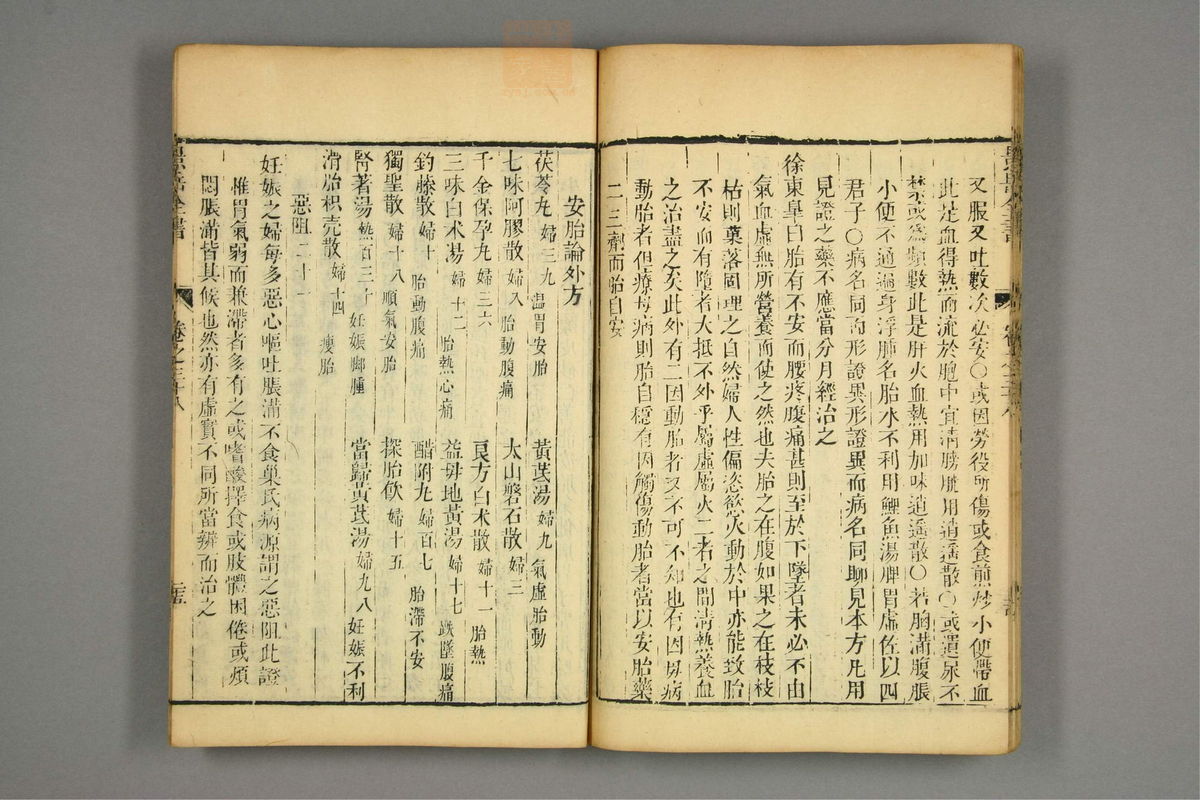 又服又吐數次必安○或因勞役所傷或食煎炒小便帶血
此是血得熱而流於胞中宜清膀胱用逍遙散○或遺尿不
禁或為頻數此是肝火血熱用加味逍遙散○若胸滿腹脹
小便不通遍身浮腫名胎水不利用鯉魚湯脾胃虛佐以四
君子○病名同而形證異形證異而病名同聊見本方凡用
見證之藥不應當分月經治之
徐東皐曰胎有不安而腰疼腹痛甚則至於下墜者未必不由
氣血虛無所營養而使之然也夫胎之在腹如果之在枝枝
枯則菓落固理之自然婦人性偏恣慾火動於中亦能致胎
不安而有墮者大抵不外乎屬虛屬火二者之間清熱養血
之治盡之矣此外有二因動胎者又不可不知也有因母病
動胎者但療母病則胎自穩有因觸傷動胎者當以安胎藥
二三劑而胎自安
安胎論外方
茯苓丸 婦三九 溫胃安胎 黃芪湯 婦九 氣虛胎動
七味阿膠散 婦八 胎動腹痛 太山磐石散 婦三
千金保孕丸 婦三六 良方白朮散 婦十一 胎熱
三味白朮湯 婦十二 胎熱心痛 益母地黃湯 婦十七 跌墜腹痛
釣藤散 婦十 胎動腹痛 醋附丸 婦百七 胎滯不安
獨聖散 婦十八 順氣安胎 探胎飲 婦十五
腎著湯 熱百三十 妊娠腳腫 當歸黃芪湯 婦九八 妊娠不利
滑胎枳壳散 婦十四 瘦胎
惡阻二十一
妊娠之婦每多惡心嘔吐脹滿不食巢氏病源謂之惡阻此證
惟胃氣弱而兼滯者多有之或嗜酸擇食或肢體困倦或煩
悶脹滿皆其候也然亦有虛實不同所當辨而治之
景岳全書 卷之三十八